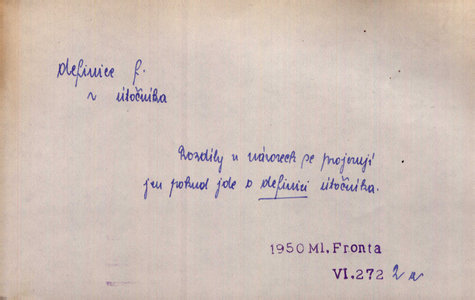 definice f.
~ útočníka
Rozdíly v názorech se projevují
jen pokud jde o definici útočníka.
1950 Ml. Fronta
VI. 272 2a